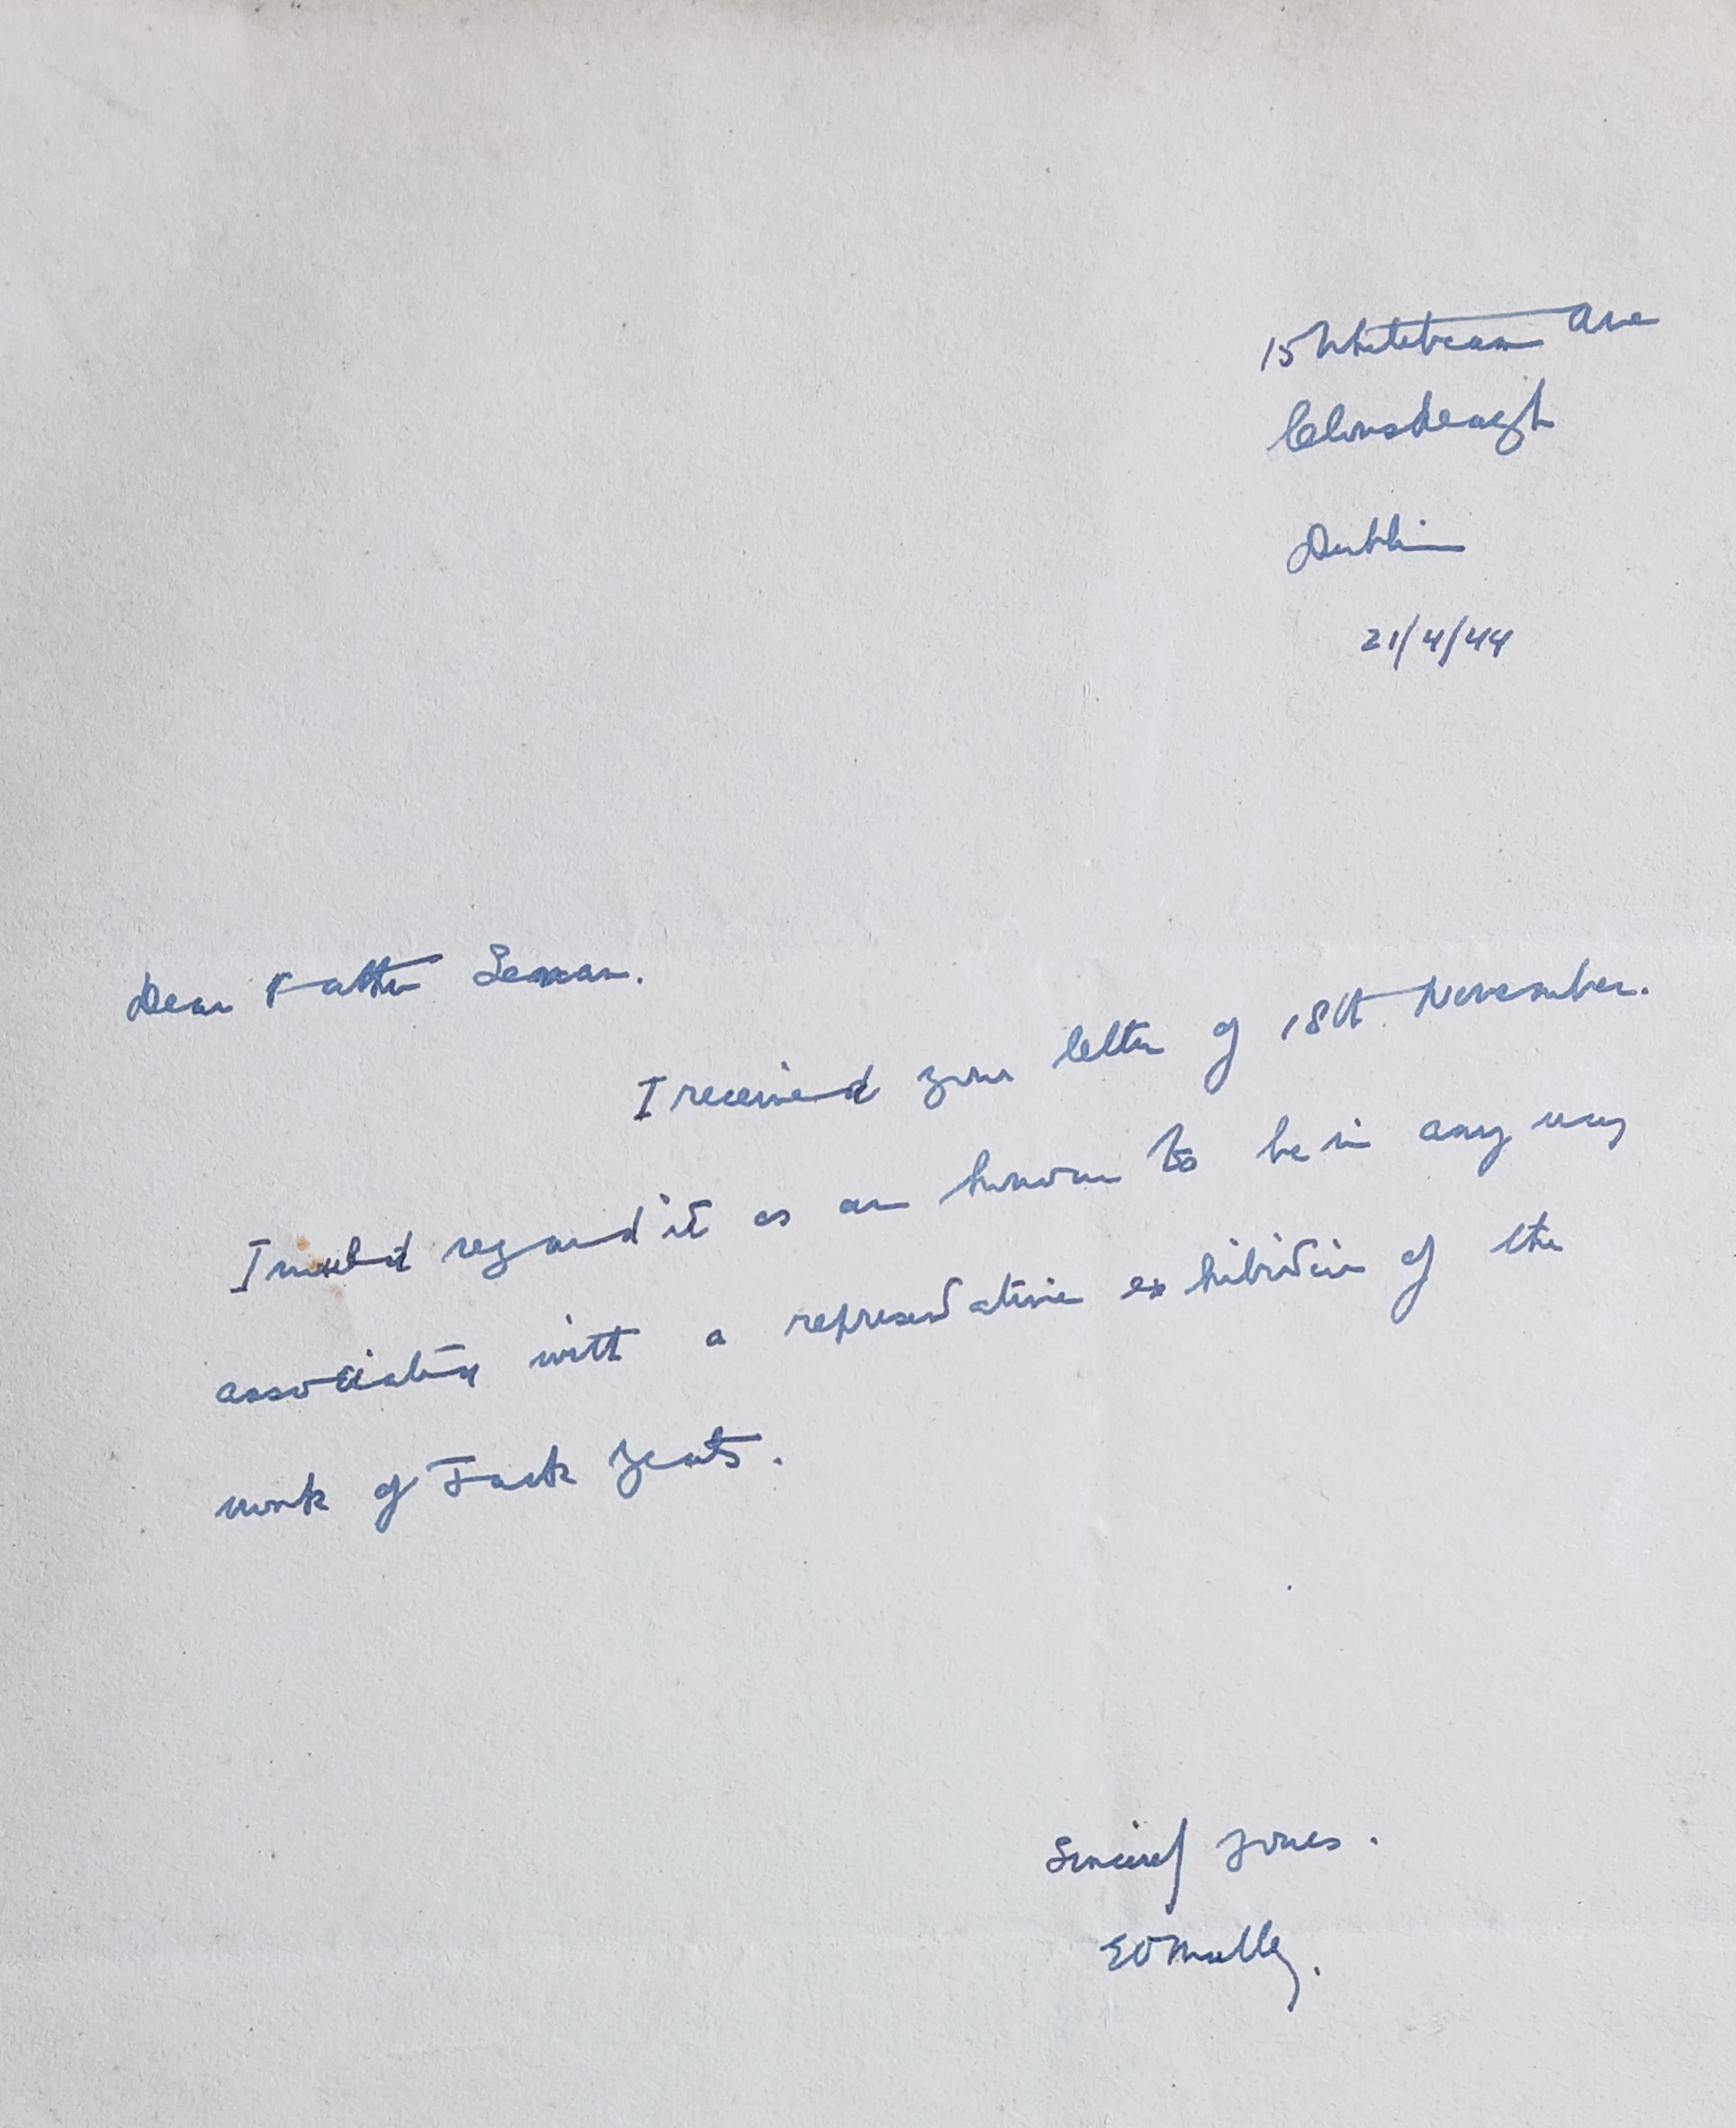 15 Whitebeam Ave
Clonskeagh
Dublin
21/4/44
Dear Father Senan.
I received your letter of 18th November.
I would regard it as an honour to be in any way
associated with a representative exhibition of the
work of Jack Yeats.
Sincerely yours.
EOMalley.